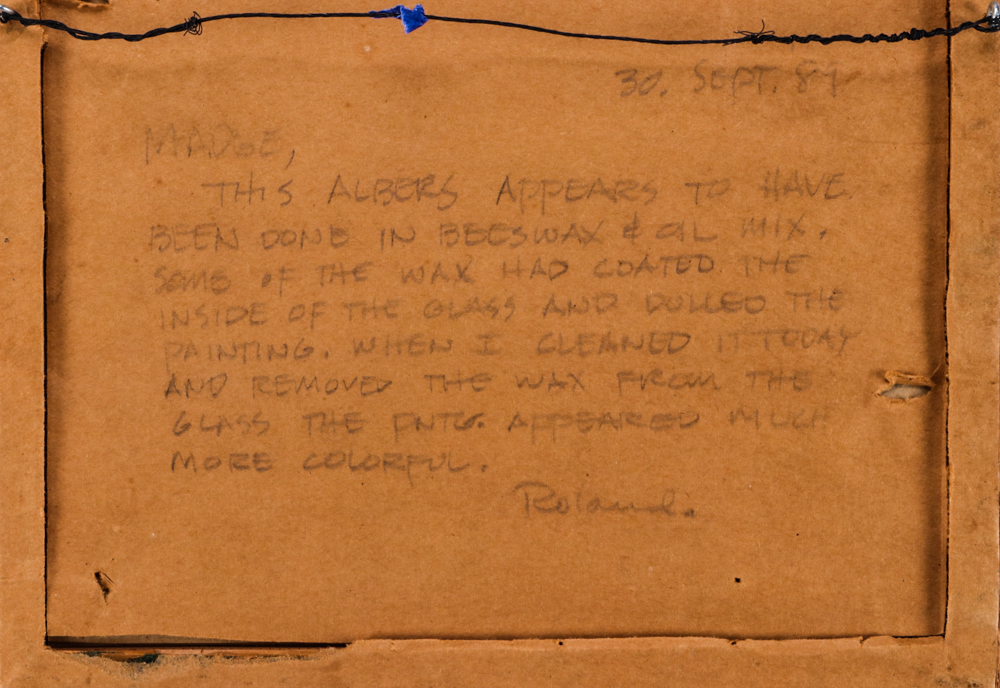 30. SEPT. 89
MADGE,
THIS ALBERS APPEARS TO HAVE
BEEN DONE IN BEESWAX & OIL MIX.
SOME OF THE WAX HAD COATED THE
INSIDE OF THE GLASS AND DULLED THE
PAINTING. WHEN I CLEANED IT TODAY
AND REMOVED THE WAX FROM THE
GLASS THE PNTG. APPEARED MUCH
MORE COLORFUL.
Roland.